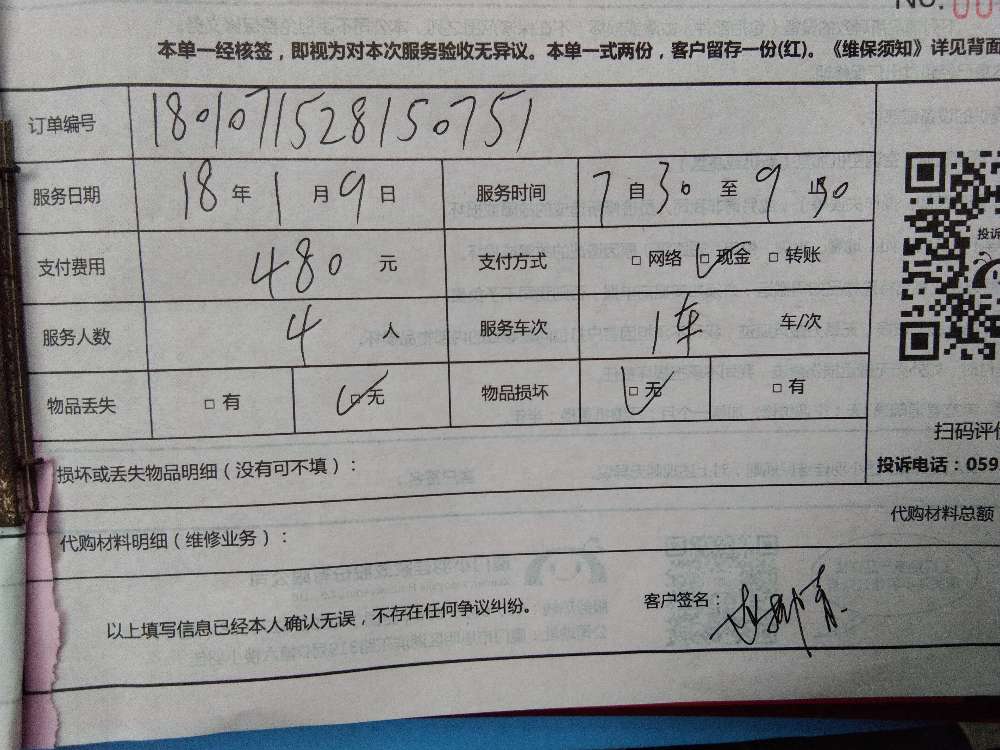 No. 00
本单一经核签，即视为对本次服务验收无异议。本单一式两份，客户留存一份(红)。《维保须知》详见背面
订单编号 1801071528150751
服务日期 18 年 1 月 9 日 服务时间 7 自 30 至 9 止 30
支付费用 480 元 支付方式 □ 网络 □ 现金 □ 转账
投诉
服务人数 4 人 服务车次 1车 车/次
物品丢失 □ 有 □ 无 物品损坏 □ 无 □ 有
扫码评价
损坏或丢失物品明细（没有可不填）：
投诉电话：059
代购材料总额
代购材料明细（维修业务）：
以上填写信息已经本人确认无误，不存在任何争议纠纷。
客户签名：